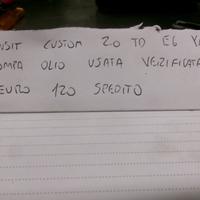 NSIT CUSTOM 20 TD E6 Y
OMPA OLIO USATA VERIFICATA
EURO 120 SPEDITO